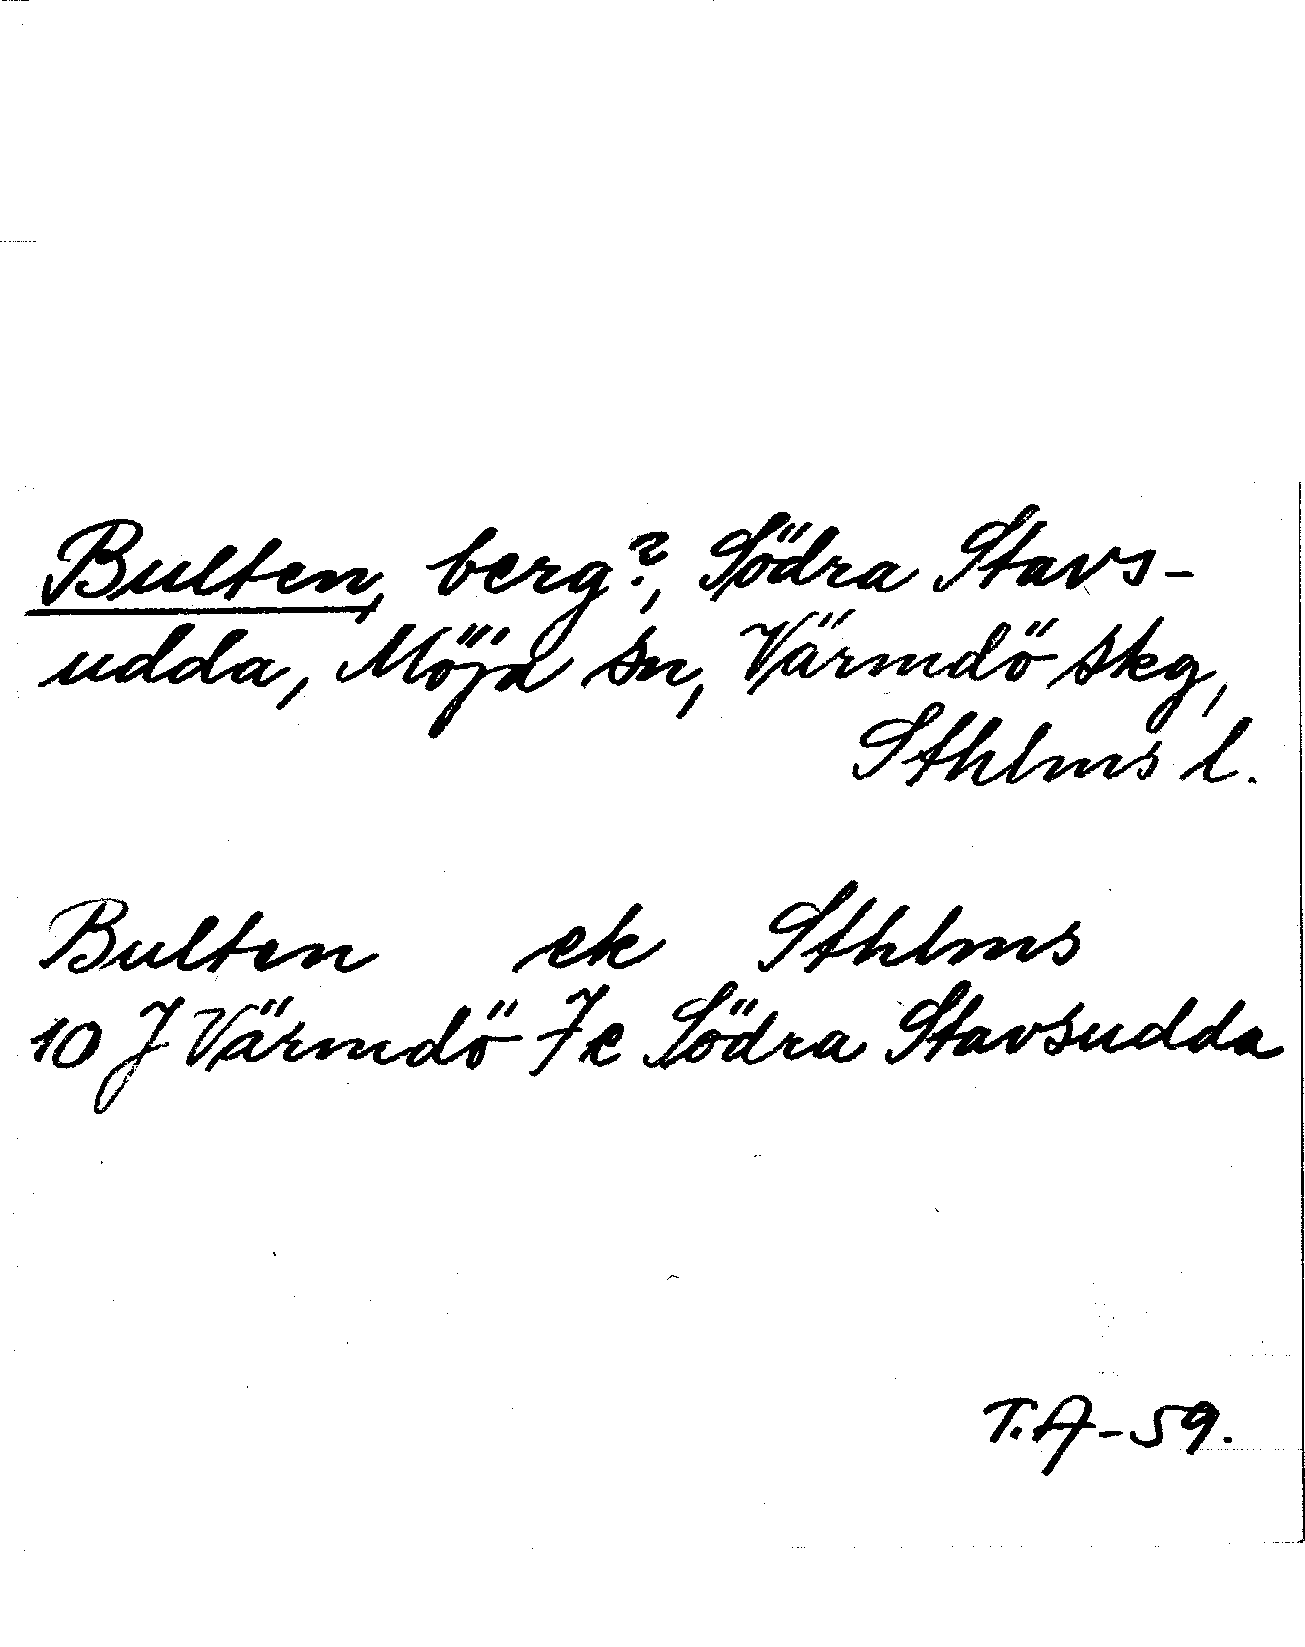 Bulten, berg?, Södra Stavs-
udda, Möja sn, Värmdö skg,
Sthlms l.
Bulten ek Sthlms
10 J Värmdö 7e Södra Stavsudda
T.A-59.